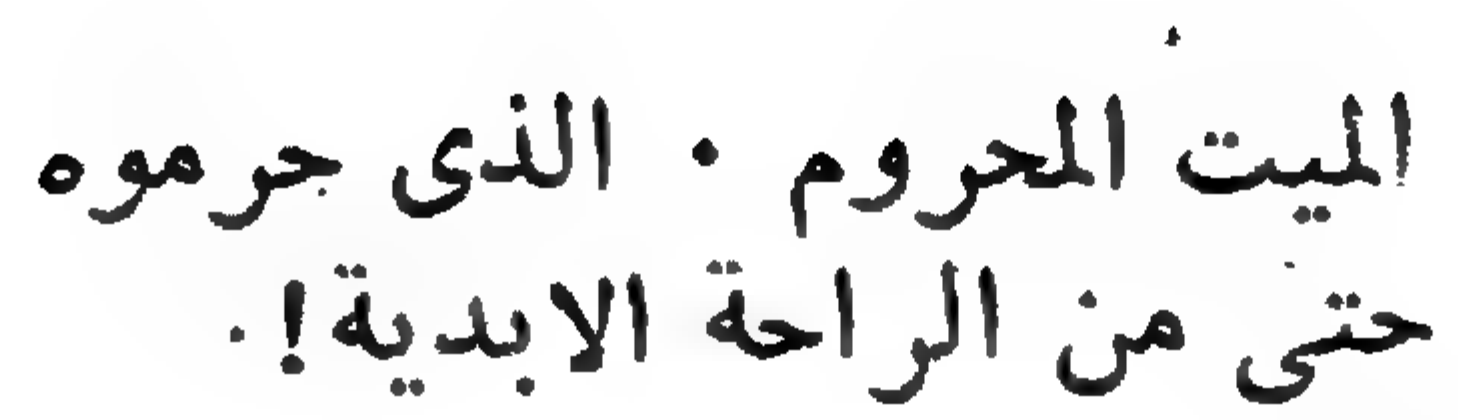 الميت المحروم . الذى جرموه
حتى من الراحة الابدية!